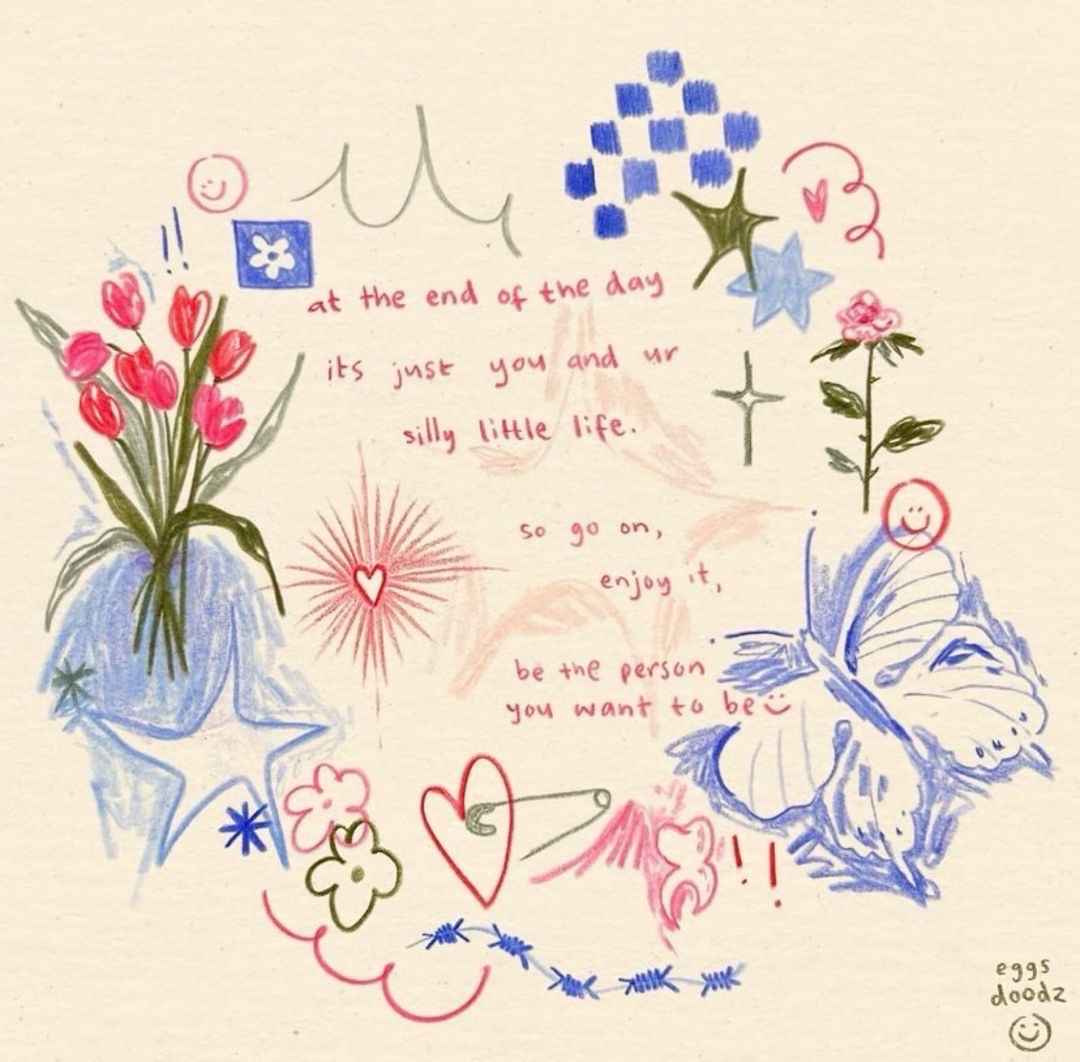 at the end of the day
its just you and ur
silly little life.
so go on,
enjoy it,
be the person
you want to be
eggs
doodz